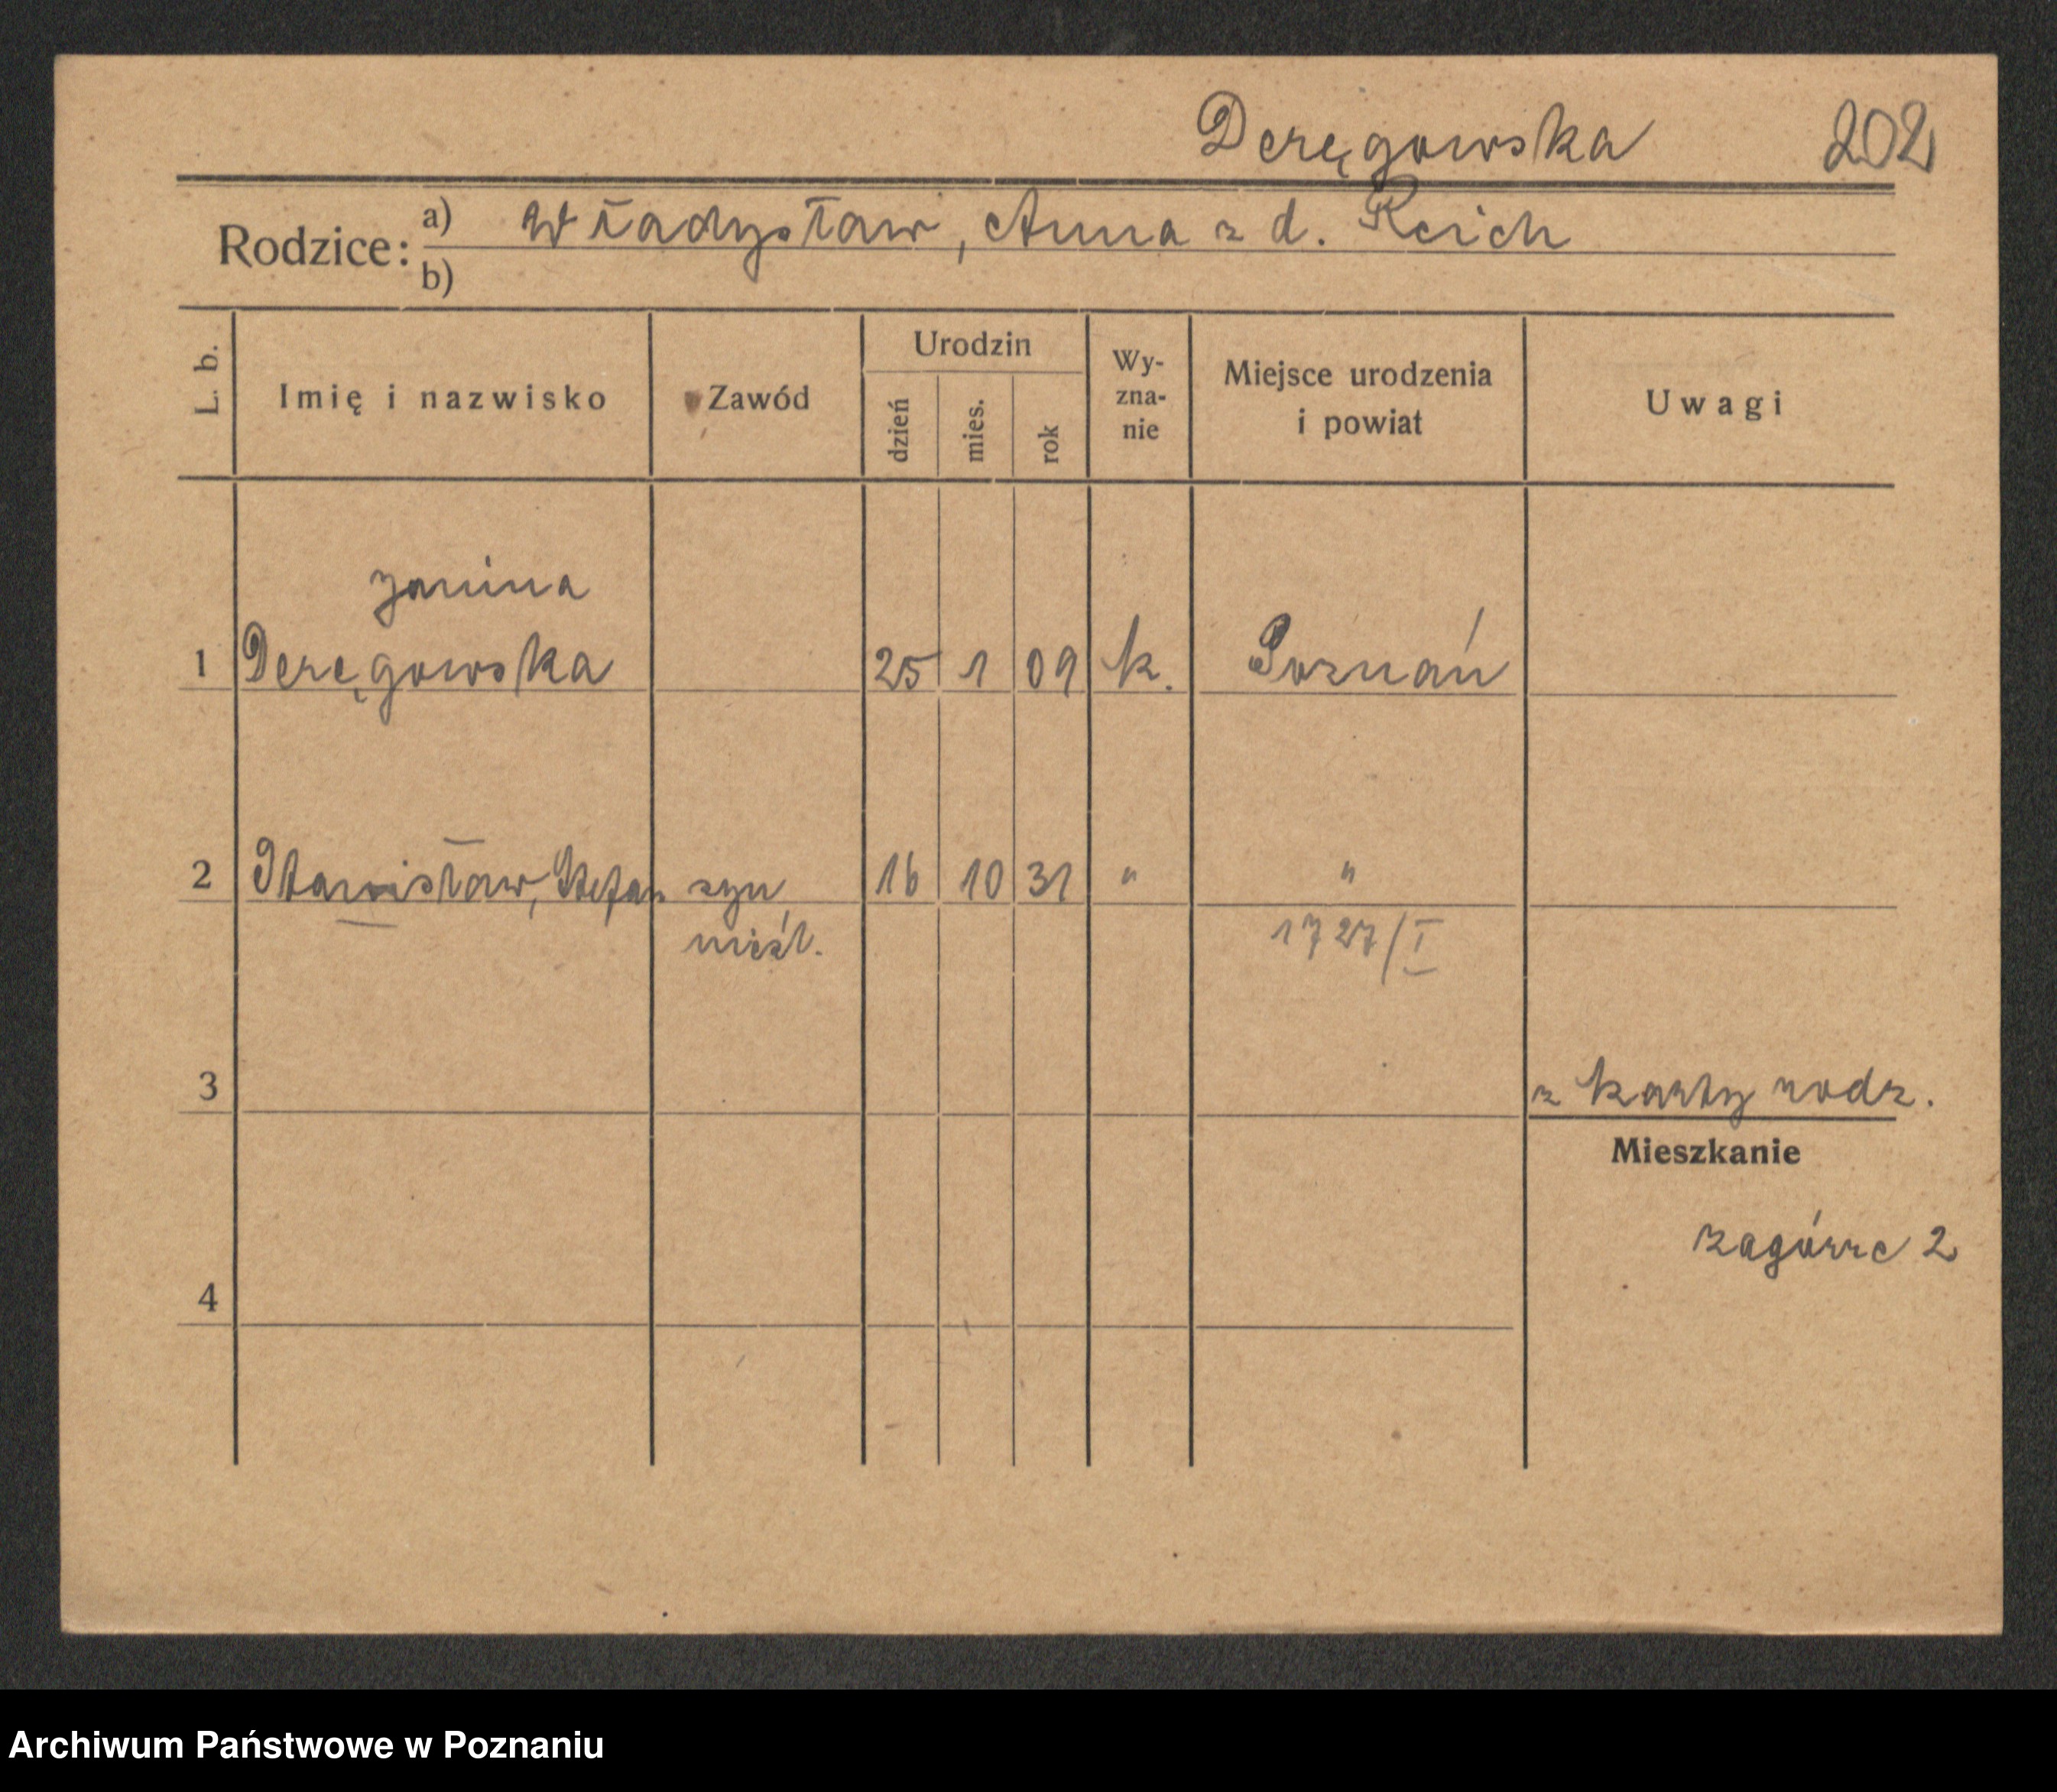 Deręgowska 202
Rodzice: a) Władysław, Anna z d. Reich
b)
L. b. Imię i nazwisko Zawód Urodzin dzień mies. rok Wy-zna-nie Miejsce urodzenia i powiat Uwagi
Janina
1 Deręgowska 25 1 09 k. Poznań
2 Stanisław, Stefan syn 16 10 31 " "
nieśl. 1727/I
3 z karty rodz.
Mieszkanie
Zagórze 2
4
Archiwum Państwowe w Poznaniu